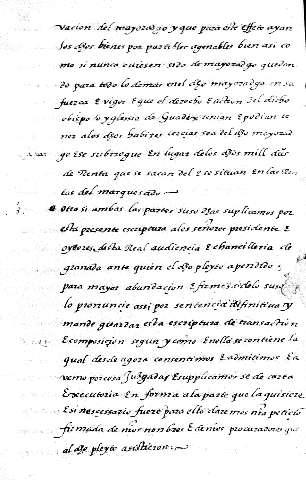 vacion del mayorazgo y que para este effeto ayan
los dhos bienes por partibles agenables bien asi co
mo si nunca oviesen sido de mayorazgo quedan
do para todo lo demas en el dho mayorazgo en su
fuerza E vigor E que el derecho E action del dicho
obispo E yglesia de Guadix tenian E podian te
ner a los dhos bienes del dho mayoraz
go E se subrrogue En lugar de los dhos mill dus
de Renta que se sacan del E se situan En las Ren
tas del marquesado
Otro si ambas las partes suso dhas suplicamos por
esta presente escriptura a los señores presidente E
oydores desta Real audiencia E chancilleria de
granada ante quien el dho pleyto a pendido
para mayor abundacion E firmeza de lo suso
lo pronuncie assi por sentencia difinitiva y
mande guardar esta escriptura de transaction
E composicion segun y como En ella se contiene la
qual desde agora consentimos E admitimos E a
vemos por cosa Juzgada E suplicamos se de carta
Executoria En forma a la parte que la quisiere
E si necessario fuere para ello daremos nra peticion
firmada de nros nonbres E de nros procuradores que
al dho pleyto asistieron